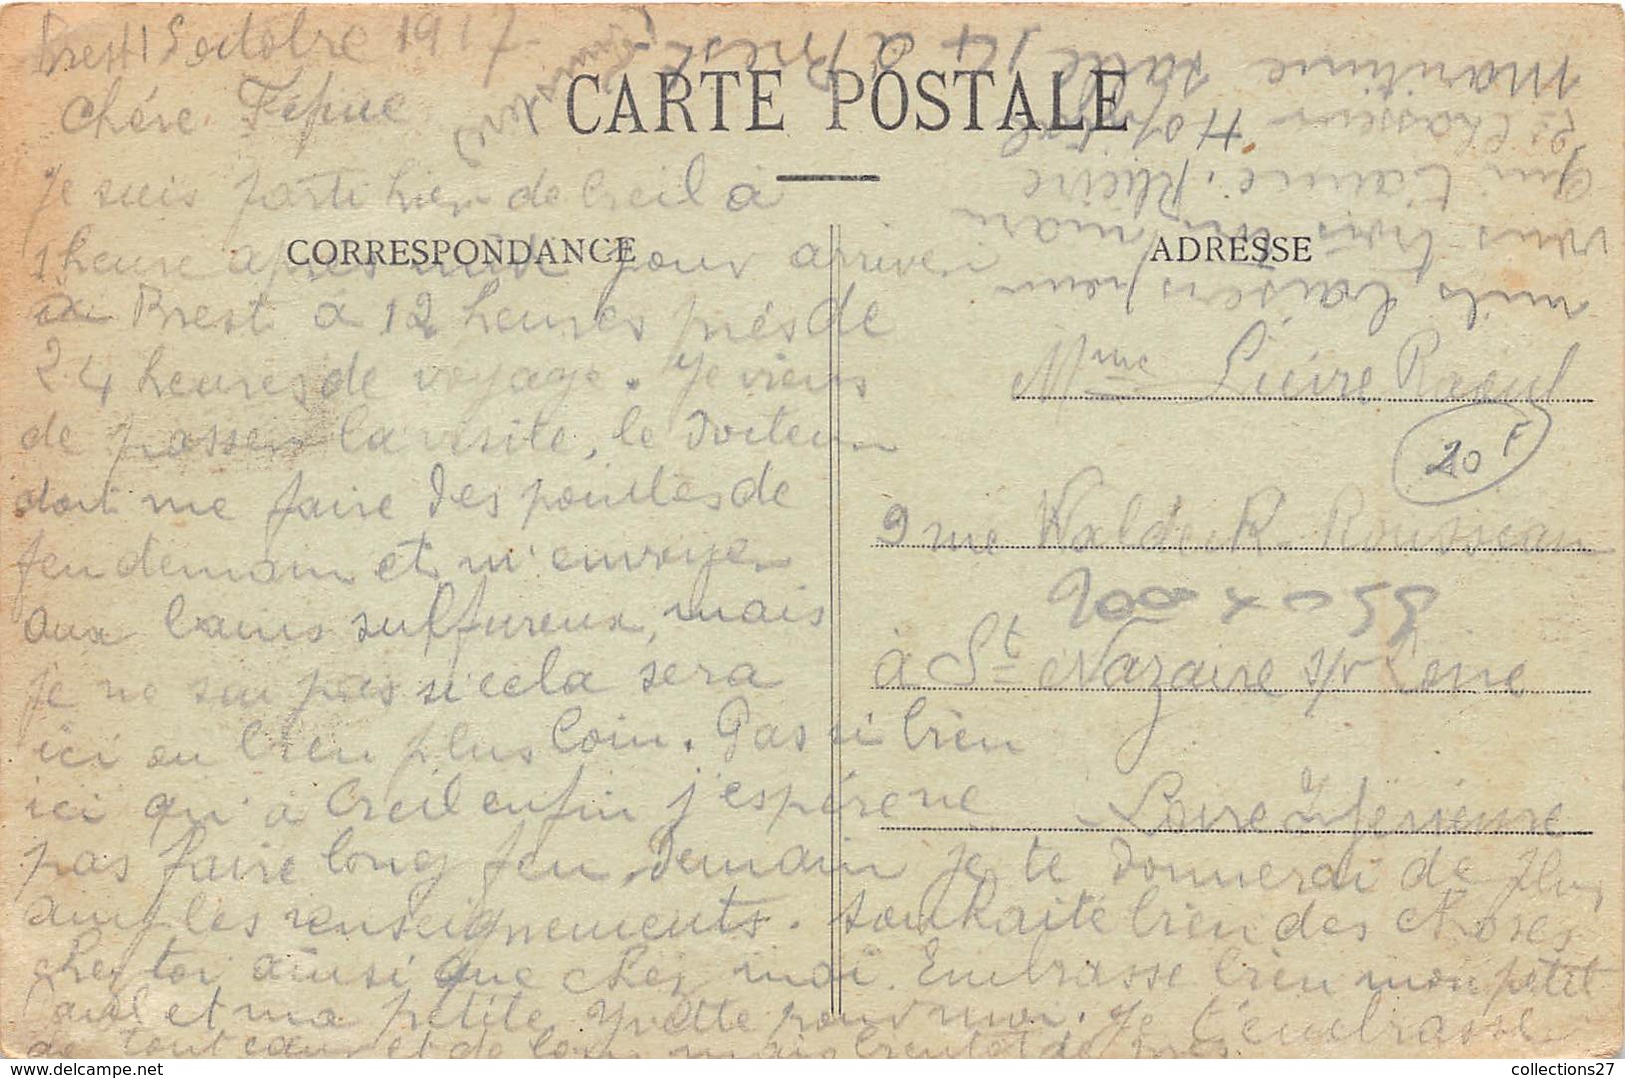 Brest 15 octobre 1917
CARTE POSTALE
Chére
Je suis parti hier de Creil à
CORRESPONDANCE
1 heure après midi pour arriver
à Brest à 12 heures près de
24 heures de voyage. Je viens
de passer la visite, le Docteur
doit me faire des pointes de
feu demain et m'envoyer
aux bains sulfureux, mais
je ne sai pas si cela sera
ici ou bien plus loin. Pas si bien
ici qu'à Creil enfin j'espére ne
pas faire long feu. Demain je te donnerai de plus
amples renseignements. Souhaite bien des choses
chez toi ainsi que chez moi. Embrasse bien mon petit
et ma petite Yvette pour moi. Je t'embrasse
de tout coeur et de loin mais bientot de près
mils baisers pour
vous trois ton mari
qui t'aime. Lièvre
Chasseur Hopital
Maritime salle 14 à Brest
ADRESSE
Mme Lièvre Raoul
20F
9 rue Waldeck-Rousseau
à St Nazaire s/r Loire
Loire Inferieure
collections27